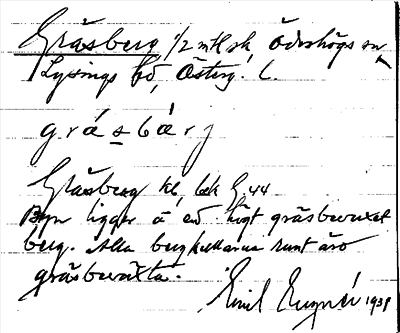 Gräsberg 1/2 mtl sk, Ödeshögs sn,
Lysings hd, Österg. l.
gräsbärj
Gräsberg
Byn ligger å ed högt gräsbevuxet
berg. Alla bergkullarna runt äro
gräsbeväxta.
Emil 1938